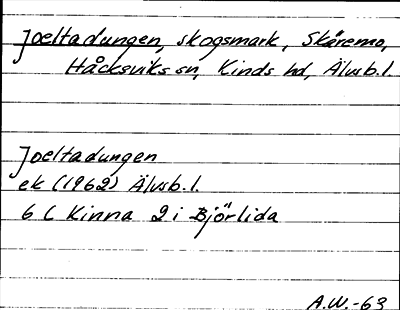 Joeltadungen, skogsmark, Skåremo,
Håcksviks sn, Kinds hd, Älvsb. l.
Joeltadungen
ek (1962) Älvsb. l.
6 C Kinna 2 i Björlida
A.W.-63